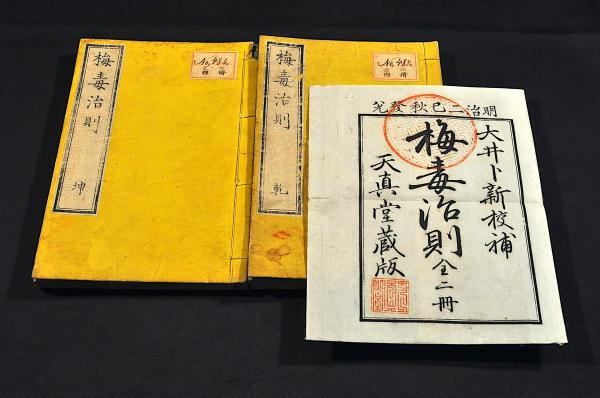 梅毒治則
坤
梅毒治則
乾
明治二巳秋發兌
大井卜新校補
梅毒治則 全二冊
天真堂蔵版